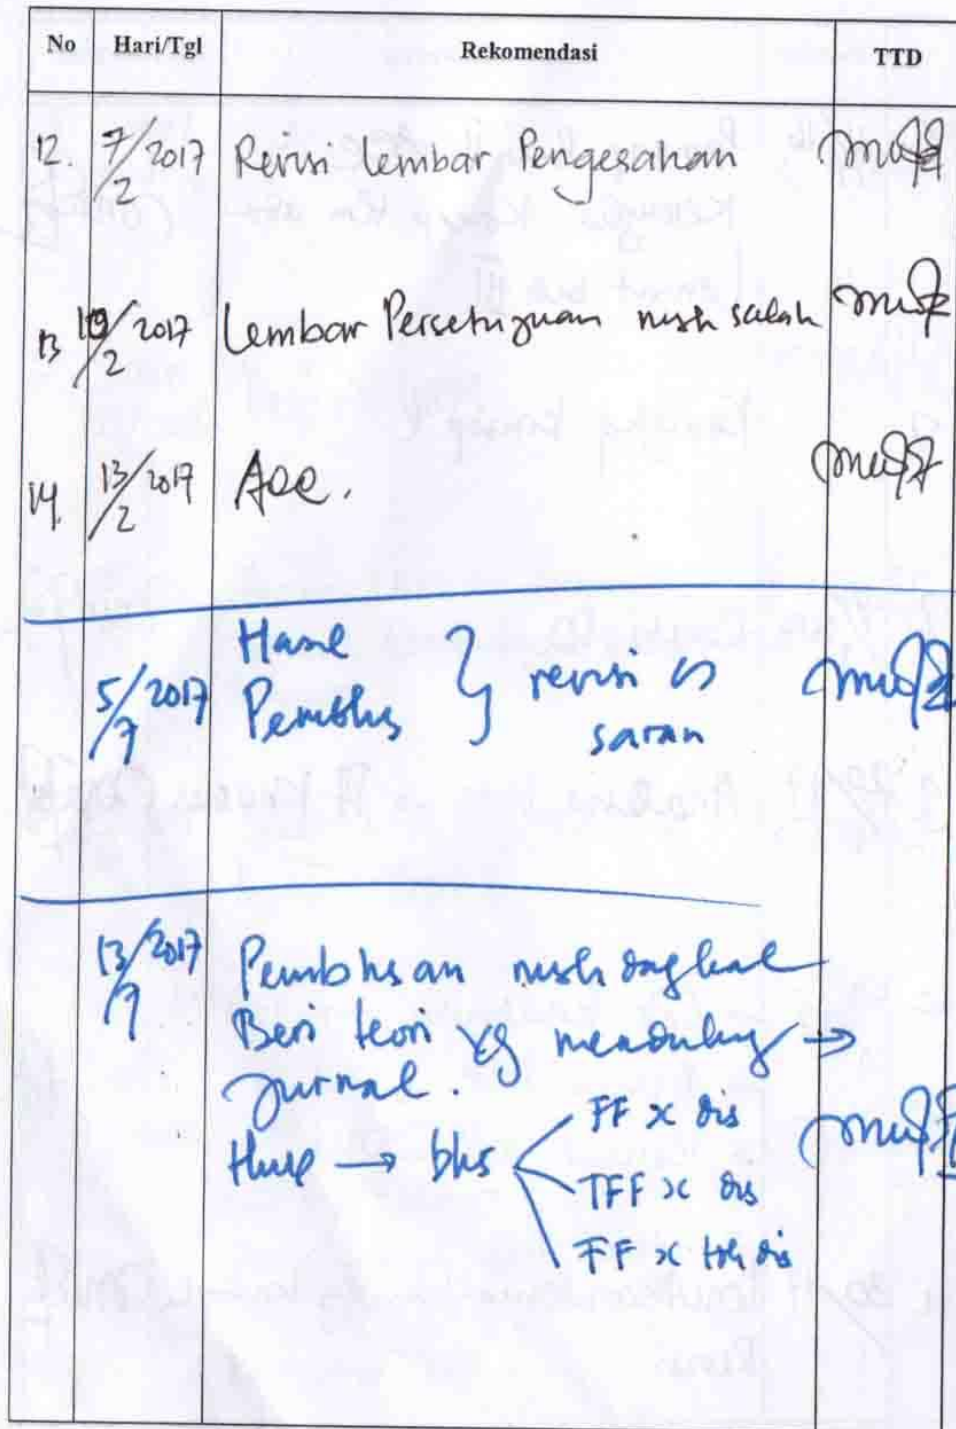 No Hari/Tgl Rekomendasi TTD
12. 7/2 2017 Revisi Lembar Pengesahan
13 10/2 2017 Lembar Persetujuan msh salah
14. 13/2 2017 Acc.
5/7 2017 Hasil
Pembhs } revisi
saran
13/7 2017 Pembhsan msh dangkal
Beri teori yg mendukung →
Jurnal.
→ bhs
FF x dis
TFF x dis
FF x tdk dis